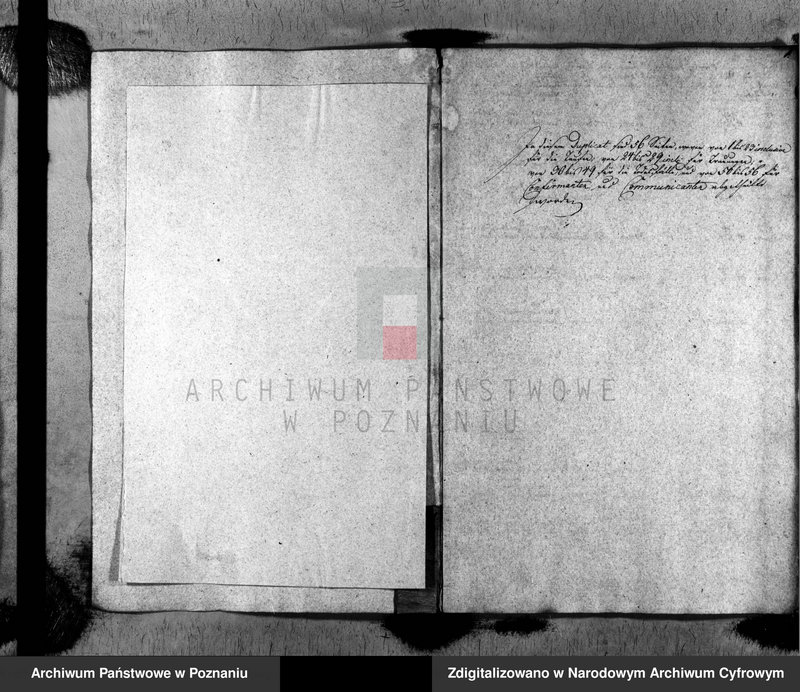 In diesem Duplicat sind 56 Seiten, wovon von 1 bis 23
für die Taufen, von 24 bis 29 incl. für Trauungen,
von 30 bis 49 für die und von 50 bis 56 für
Confirmanten und Communicanten
worden
ARCHIWUM PAŃSTWOWE
W POZNANIU
Archiwum Państwowe w Poznaniu
Zdigitalizowano w Narodowym Archiwum Cyfrowym